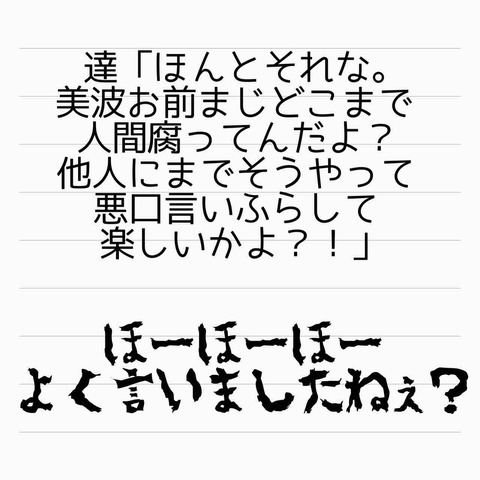 達「ほんとそれな。
美波お前まじどこまで
人間腐ってんだよ？
他人にまでそうやって
悪口言いふらして
楽しいかよ？！」
ほーほーほー
よく言いましたねぇ?